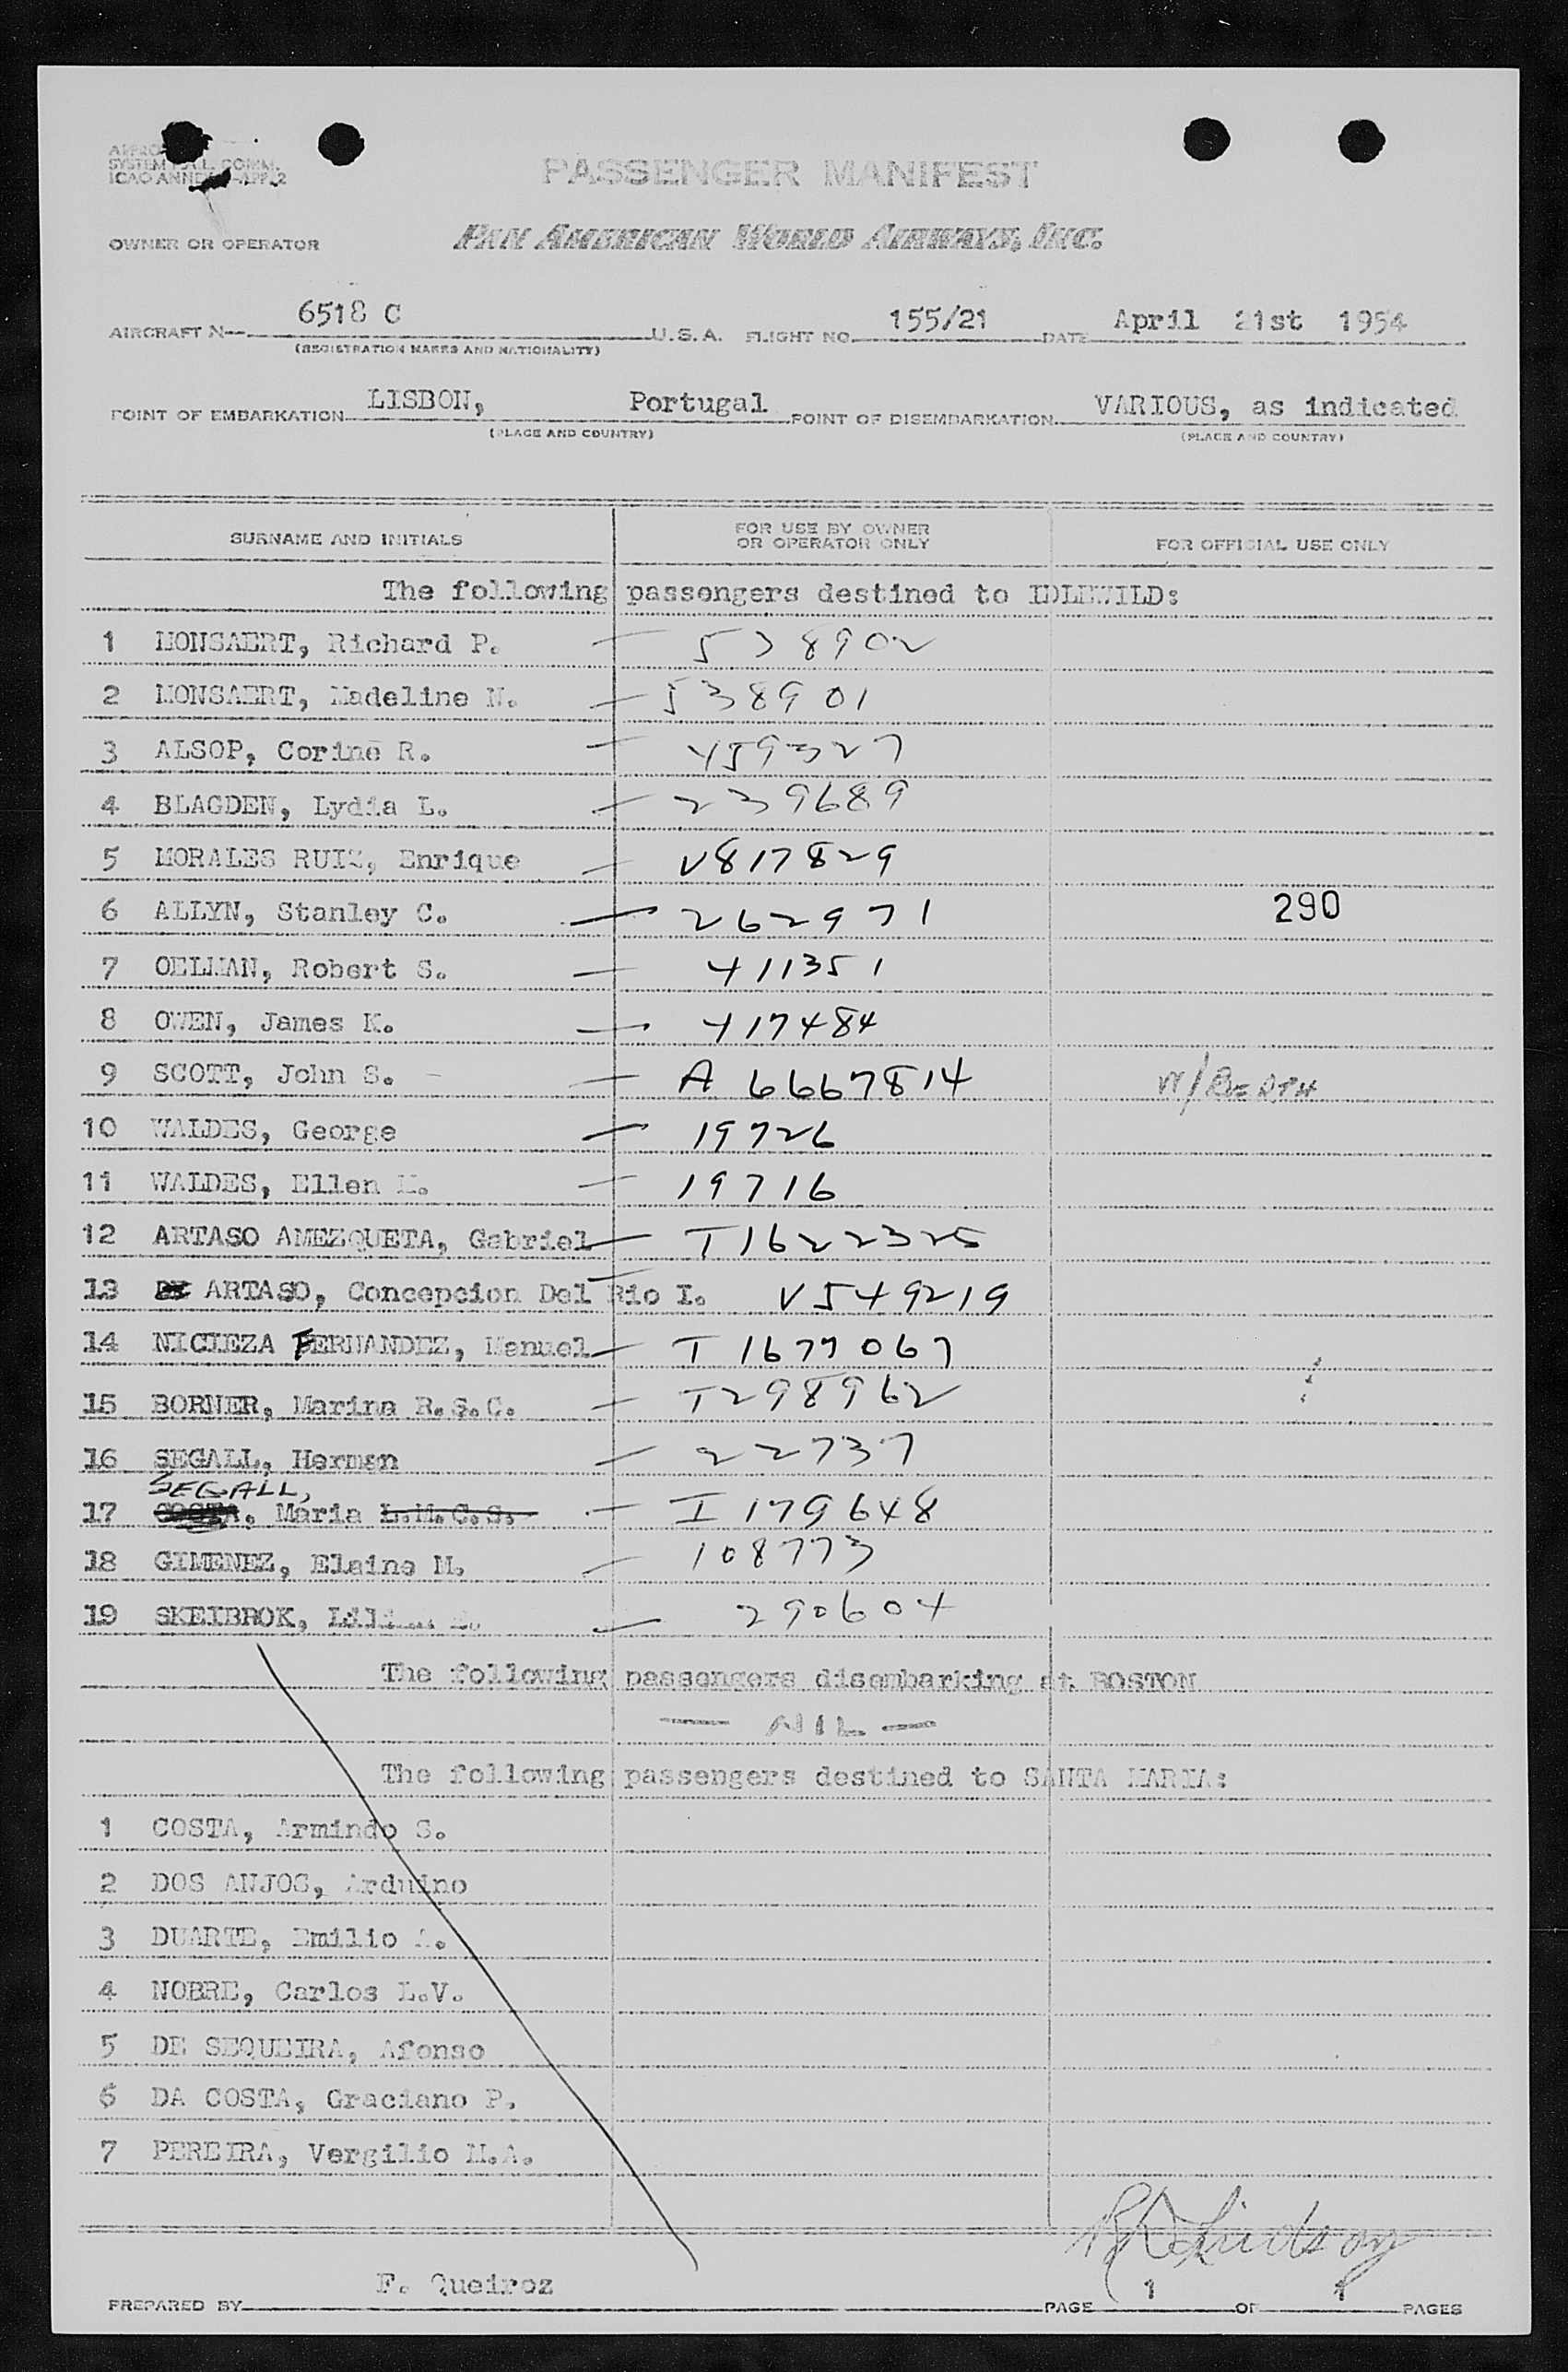 SYSTEM
ICAO ANNEX
PASSENGER MANIFEST
OWNER OR OPERATOR PAN AMERICAN WORLD AIRWAYS, INC.
AIRCRAFT N 6518 C U.S.A. FLIGHT NO. 155/21 DATE April 21st 1954
(REGISTRATION MARKS AND NATIONALITY)
POINT OF EMBARKATION LISBON, Portugal POINT OF DISEMBARKATION VARIOUS, as indicated
(PLACE AND COUNTRY) (PLACE AND COUNTRY)
SURNAME AND INITIALS FOR USE BY OWNER OR OPERATOR ONLY FOR OFFICIAL USE ONLY
The following passengers destined to IDLEWILD:
1 MONSAERT, Richard P. — 538902
2 MONSAERT, Madeline N. — 538901
3 ALSOP, Corine R. — 459327
4 BLAGDEN, Lydia L. — 239689
5 MORALES RUIZ, Enrique — V817829
6 ALLYN, Stanley C. — 262971 290
7 OELMAN, Robert S. — 411351
8 OWEN, James K. — 417484
9 SCOTT, John S. — A 6667814
10 WALDES, George — 19726
11 WALDES, Ellen — 19716
12 ARTASO AMEZQUETA, Gabriel — T1622325
13 ARTASO, Concepcion Del Rio I. V549219
14 NICIEZA FERNANDEZ, Manuel — T 1677067
15 BORNER, Marina R.S.C. — T298962
16 SEGALL, Herman — 22737
SEGALL,
17 COSTA, Maria L.M.C.S. — I 179648
18 GIMENEZ, Elaine M. — 108773
19 SKEIBROK, — 290604
The following passengers disembarking at BOSTON
— NIL —
The following passengers destined to SANTA MARIA:
1 COSTA, Armindo S.
2 DOS ANJOS, Arduino
3 DUARTE, Emilio A.
4 NOBRE, Carlos L.V.
5 DE SEQUEIRA, Afonso
6 DA COSTA, Graciano P.
7 PEREIRA, Vergilio M.A.
PREPARED BY F. Queiroz PAGE 1 OF 1 PAGES